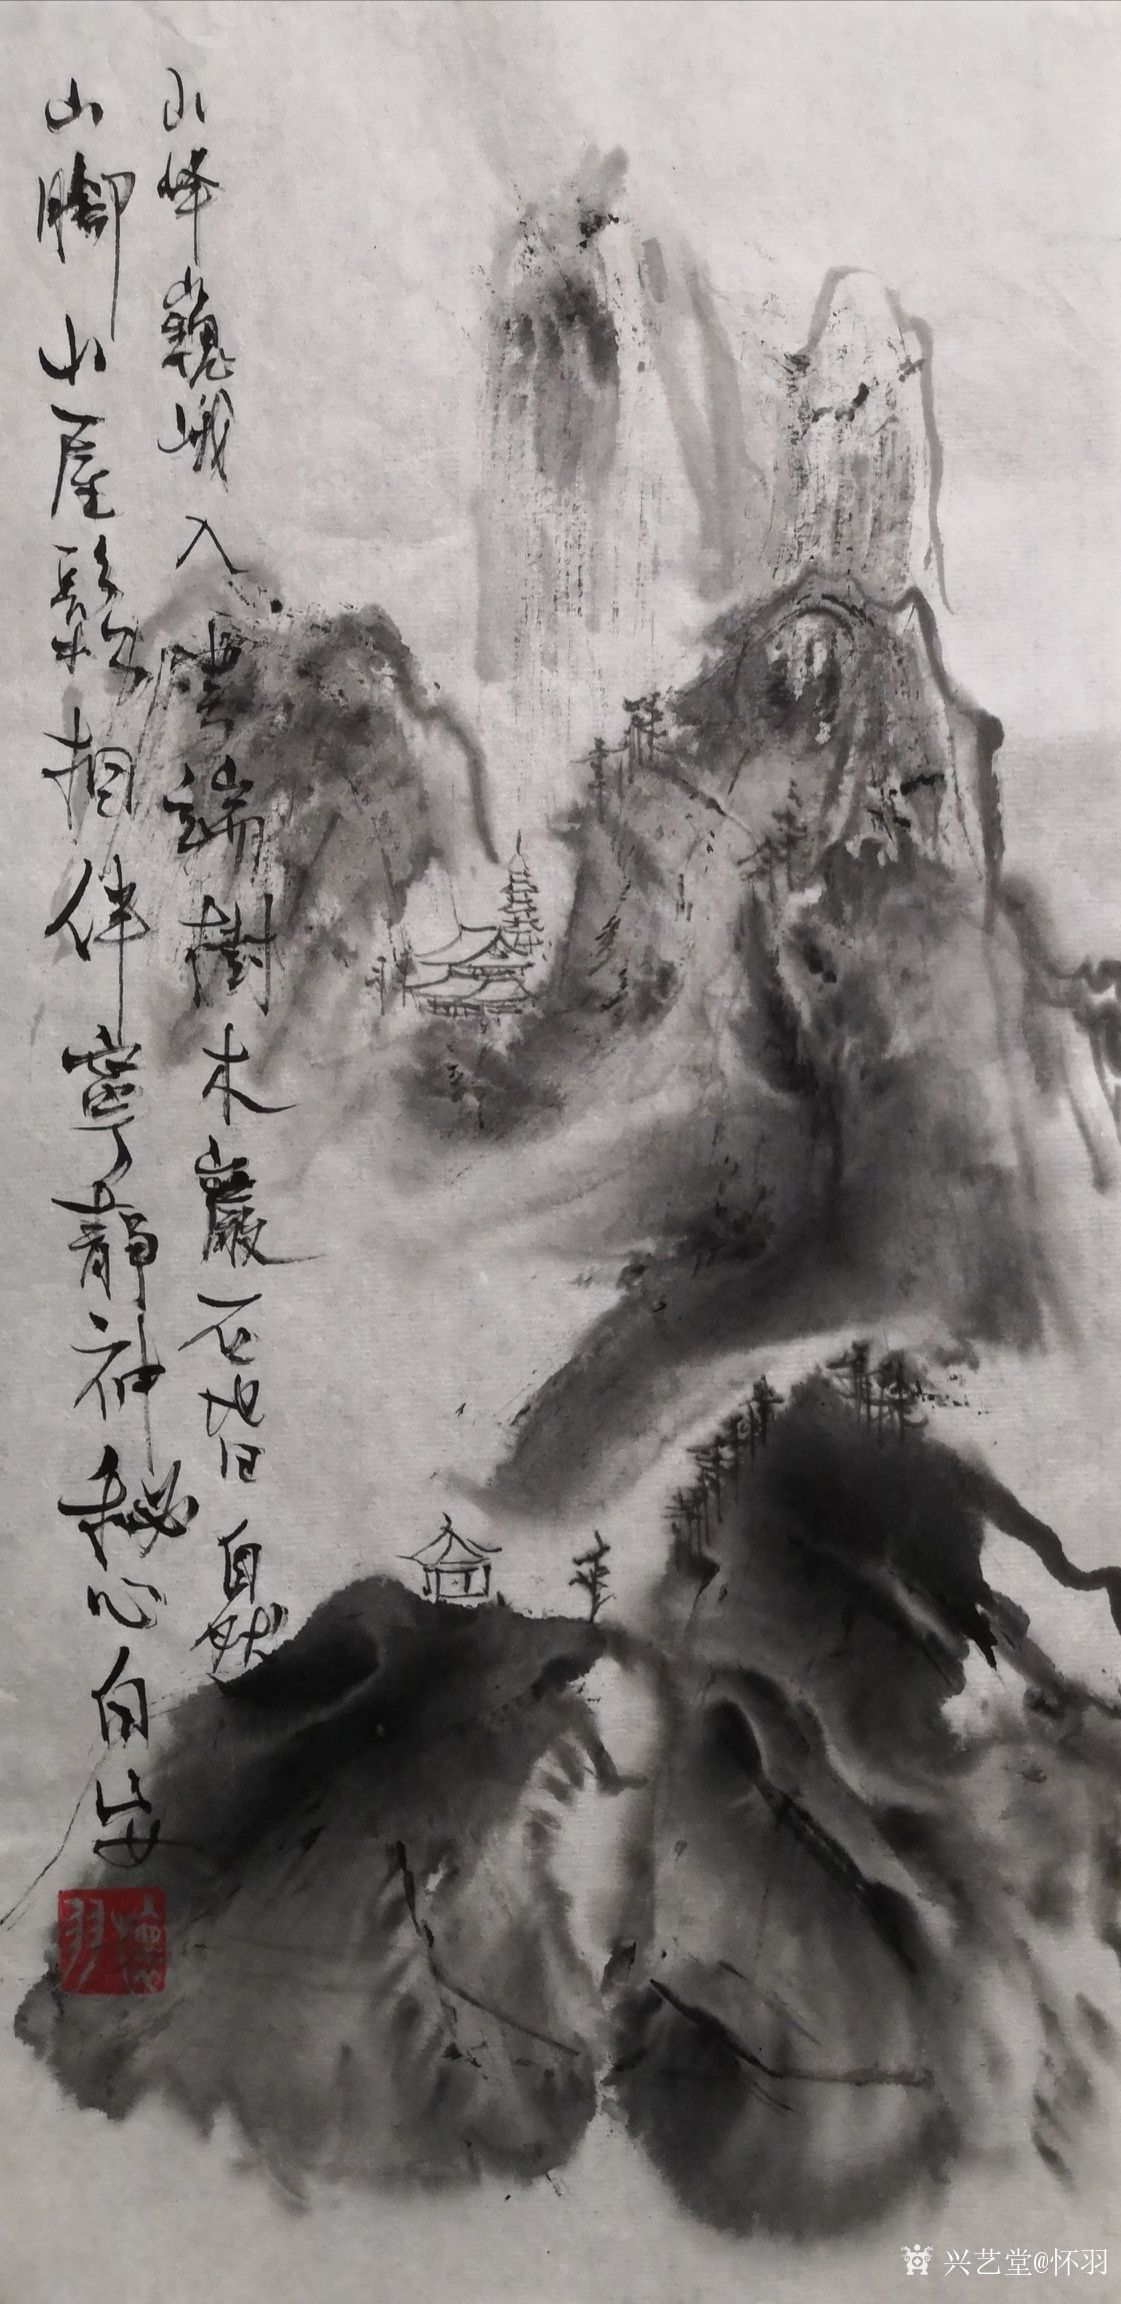 山峰巍峨入雲端樹木巖石皆自然
山脚小屋鬆相伴寧靜神秘心自安
懷羽
兴艺堂@怀羽